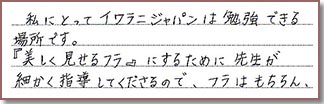 私にとってイワラニジャパンは勉強できる
場所です。
『美しく見せるフラ』にするために先生が
細かく指導してくださるので、フラはもちろん、